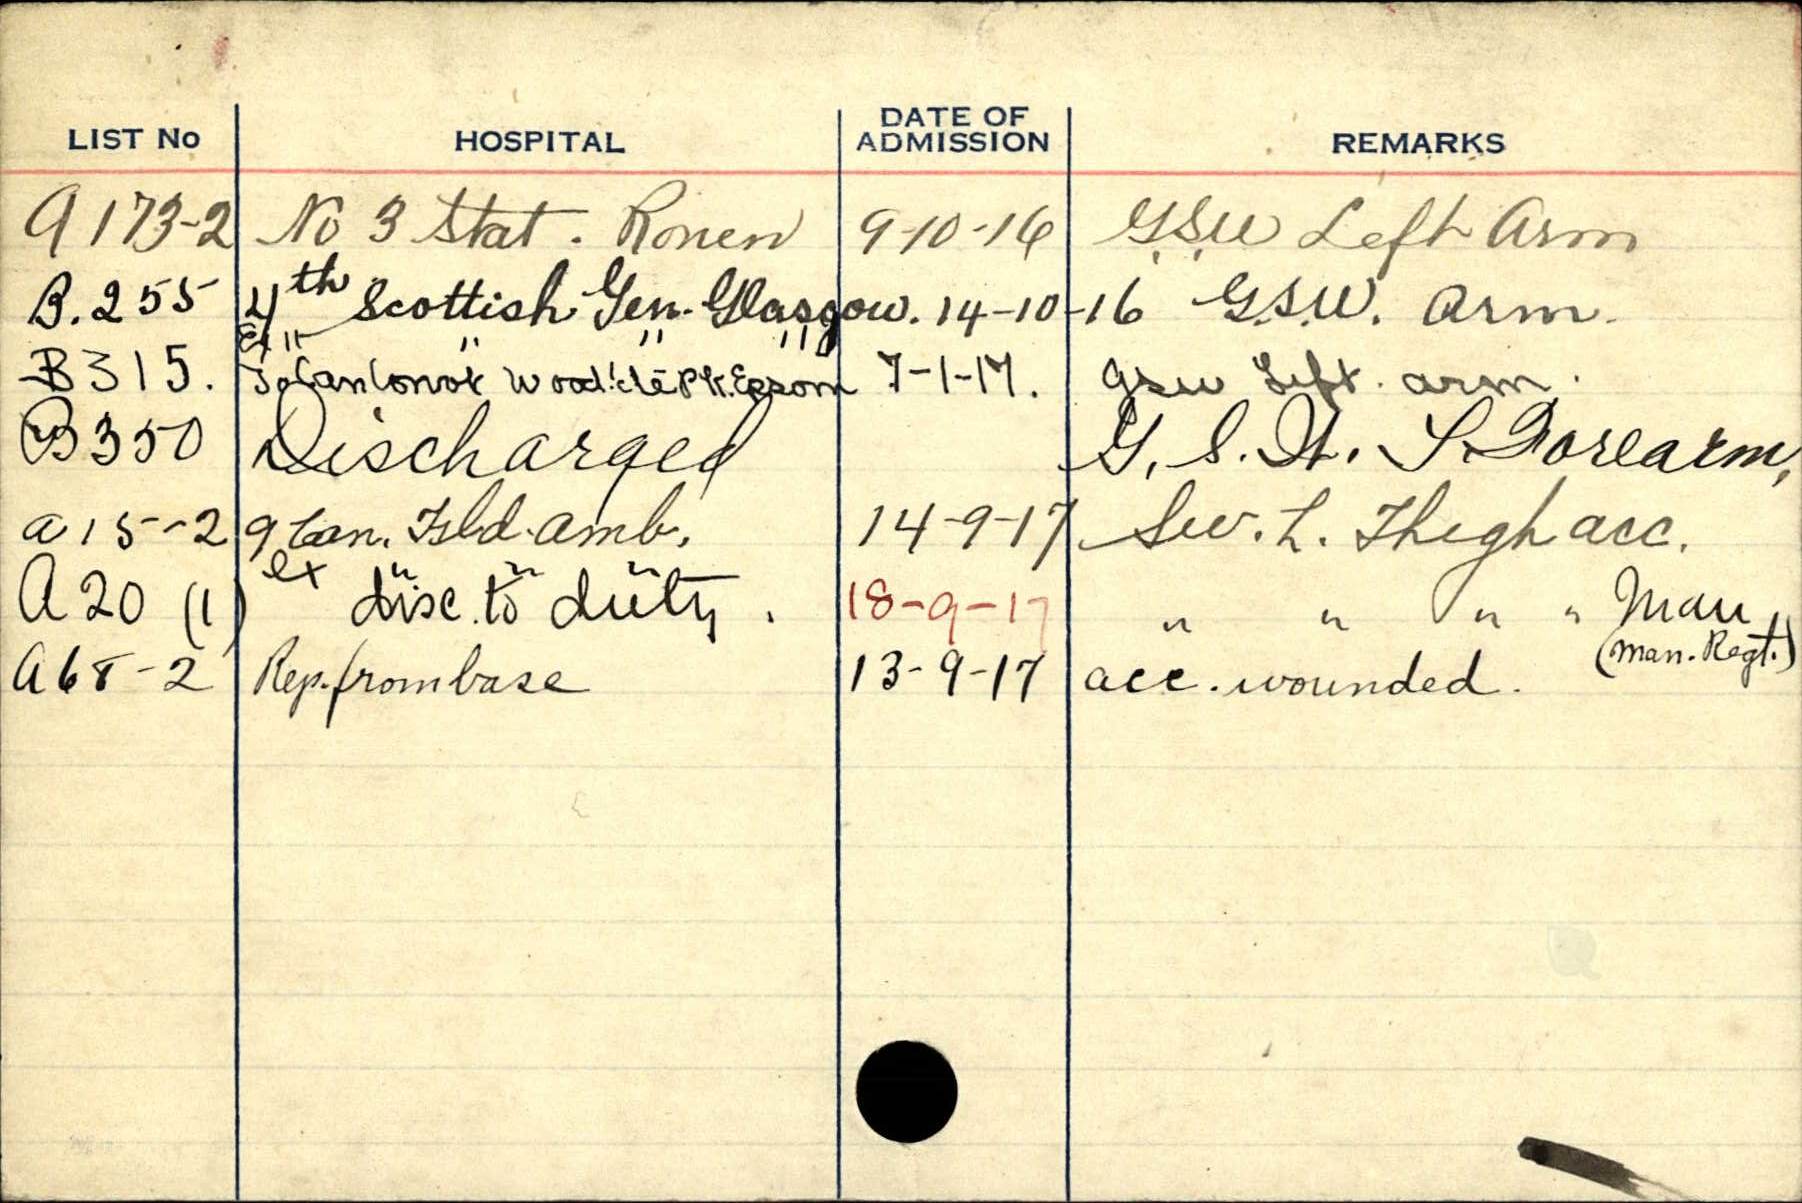 LIST No HOSPITAL DATE OF ADMISSION REMARKS
A 173-2 No 3 Stat. Rouen 9-10-16 G.S.W Left Arm
B. 255 4th Scottish Gen. Glasgow. 14-10-16 G.S.W. Arm.
Ex " " " "
B 315. To Can Conv Wood'cte Pk. Epsom 7-1-17. gsw Left. arm.
B 350 Discharged G. S. W. L. Forearm,
a 15-2 9 Can. Fld. amb. 14-9-17 Sw. L. Thigh acc.
A 20 (1) ex " " " disc. to duty. 18-9-17 " " " " Mau
(Man. Regt.)
A 68-2 Rep. from base 13-9-17 acc. wounded.